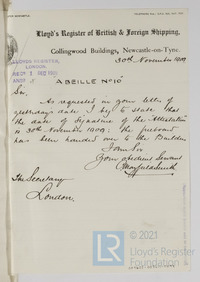 Lloyd's Register of British & Foreign Shipping,
Collingwood Buildings, Newcastle-on-Tyne.
30th November 1909
LLOYDS REGISTER,
LONDON.
"ABEILLE No 10"
Sir,
As requested in your letter of
yesterday's date I beg to state that
the date of signature of the Attestation
is 30th November 1909; the
has been handed over to the Builders
I am Sir
Your obedient Servant
The Secretary
London.
© 2021
Lloyd's Register
Foundation